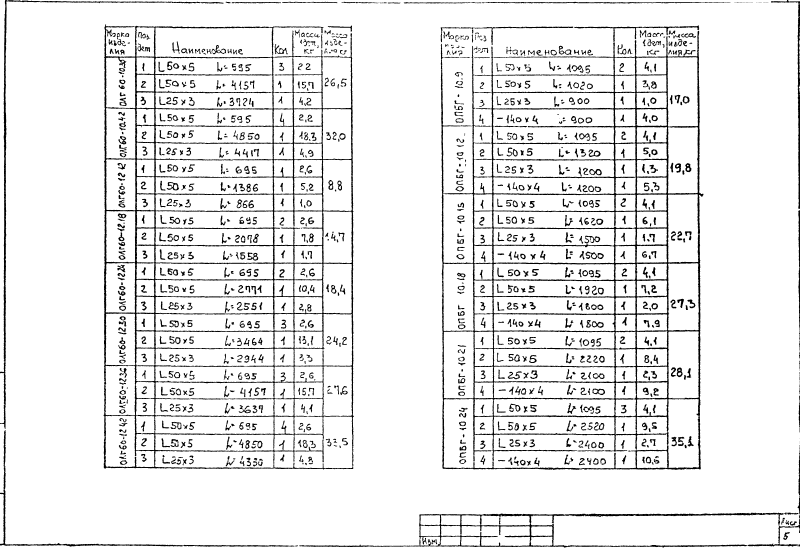 Марка изделия | Поз дет | Наименование | Кол | Масса 1 дет, кг | Масса изделия, кг
ОЛГ60-10.36 | 1 | L50×5 L=595 | 3 | 2,2 | 26,5
2 | L50×5 L=4157 | 1 | 15,7
3 | L25×3 L=3724 | 1 | 4,2
ОЛГ60-10.42 | 1 | L50×5 L=595 | 4 | 2,2 | 32,0
2 | L50×5 L=4850 | 1 | 18,3
3 | L25×3 L=4417 | 1 | 4,9
ОЛГ60-12.12 | 1 | L50×5 L=695 | 1 | 2,6 | 8,8
2 | L50×5 L=1386 | 1 | 5,2
3 | L25×3 L=866 | 1 | 1,0
ОЛГ60-12.18 | 1 | L50×5 L=695 | 2 | 2,6 | 14,7
2 | L50×5 L=2078 | 1 | 7,8
3 | L25×3 L=1558 | 1 | 1,7
ОЛГ60-12.24 | 1 | L50×5 L=695 | 2 | 2,6 | 18,4
2 | L50×5 L=2771 | 1 | 10,4
3 | L25×3 L=2551 | 1 | 2,8
ОЛГ60-12.30 | 1 | L50×5 L=695 | 3 | 2,6 | 24,2
2 | L50×5 L=3464 | 1 | 13,1
3 | L25×3 L=2944 | 1 | 3,3
ОЛГ60-12.36 | 1 | L50×5 L=695 | 3 | 2,6 | 27,6
2 | L50×5 L=4157 | 1 | 15,7
3 | L25×3 L=3637 | 1 | 4,1
ОЛГ60-12.42 | 1 | L50×5 L=695 | 4 | 2,6 | 33,5
2 | L50×5 L=4850 | 1 | 18,3
3 | L25×3 L=4330 | 1 | 4,8
Марка изделия | Поз дет | Наименование | Кол | Масс. 1 дет, кг | Масса изделия, кг
ОПБГ-10.9 | 1 | L50×5 L=1095 | 2 | 4,1 | 17,0
2 | L50×5 L=1020 | 1 | 3,8
3 | L25×3 L=900 | 1 | 1,0
4 | -140×4 L=900 | 1 | 4,0
ОПБГ-10.12 | 1 | L50×5 L=1095 | 2 | 4,1 | 19,8
2 | L50×5 L=1320 | 1 | 5,0
3 | L25×3 L=1200 | 1 | 1,3
4 | -140×4 L=1200 | 1 | 5,3
ОПБГ-10.15 | 1 | L50×5 L=1095 | 2 | 4,1 | 22,7
2 | L50×5 L=1620 | 1 | 6,1
3 | L25×3 L=1500 | 1 | 1,7
4 | -140×4 L=1500 | 1 | 6,7
ОПБГ 10.18 | 1 | L50×5 L=1095 | 2 | 4,1 | 27,3
2 | L50×5 L=1920 | 1 | 7,2
3 | L25×3 L=1800 | 1 | 2,0
4 | -140×4 L=1800 | 1 | 7,9
ОПБГ-10.21 | 1 | L50×5 L=1095 | 2 | 4,1 | 28,1
2 | L50×5 L=2220 | 1 | 8,4
3 | L25×3 L=2100 | 1 | 2,3
4 | -140×4 L=2100 | 1 | 9,2
ОПБГ-10.24 | 1 | L50×5 L=1095 | 3 | 4,1 | 35,1
2 | L50×5 L=2520 | 1 | 9,5
3 | L25×3 L=2400 | 1 | 2,7
4 | -140×4 L=2400 | 1 | 10,6
Изм.
Лист
5